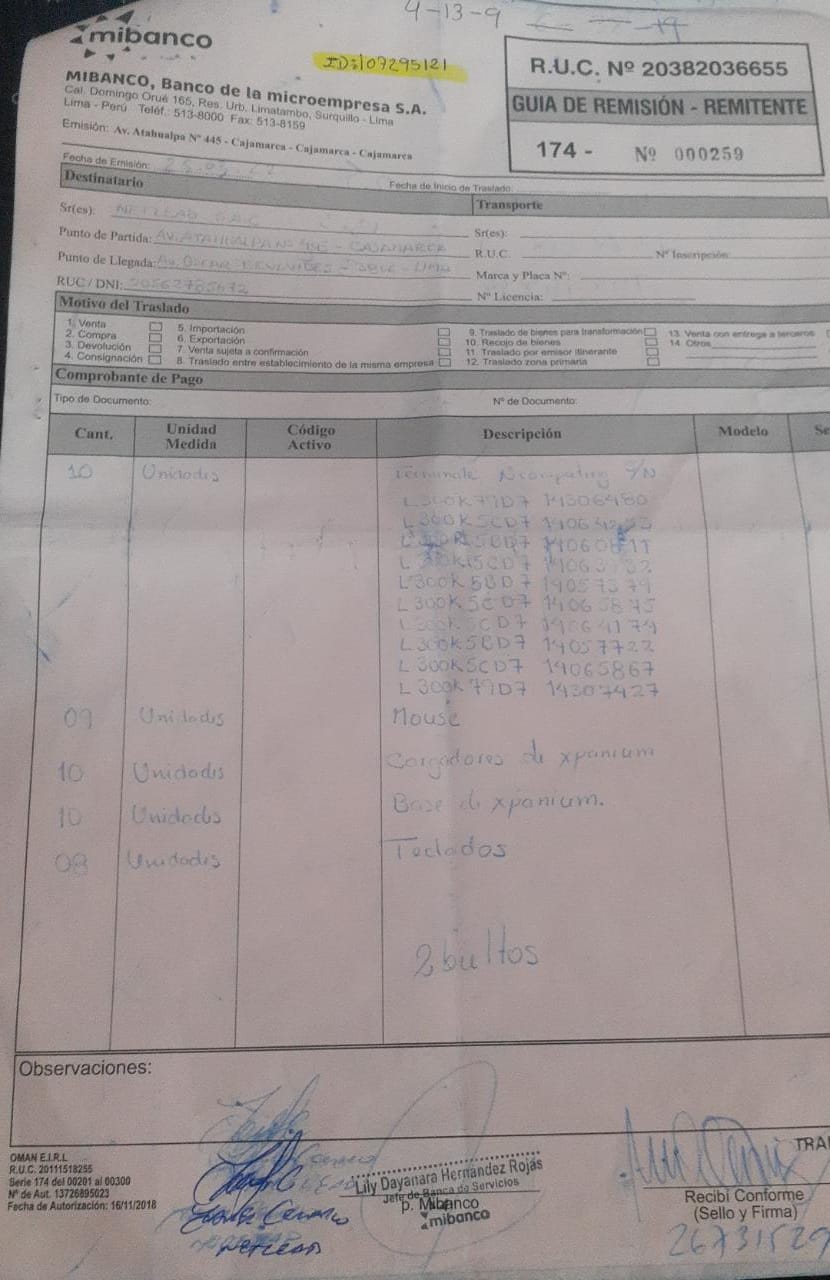 4-13-9
mibanco
ID:107295121
MIBANCO, Banco de la microempresa S.A.
Cal. Domingo Orué 165, Res. Urb. Limatambo, Surquillo - Lima
Lima - Perú Teléf.: 513-8000 Fax: 513-8159
Emisión: Av. Atahualpa Nº 445 - Cajamarca - Cajamarca - Cajamarca
R.U.C. Nº 20382036655
GUIA DE REMISIÓN - REMITENTE
174 - Nº 000259
Fecha de Emisión:
Fecha de Inicio de Traslado:
Destinatario
Transporte
Sr(es):
Sr(es):
Punto de Partida: AV. ATAHUALPA Nº - CAJAMARCA
R.U.C. Nº Inscripción:
Punto de Llegada: AV. OSCAR - LIMA
Marca y Placa Nº:
RUC / DNI:
Nº Licencia:
Motivo del Traslado
1. Venta
2. Compra
3. Devolución
4. Consignación
5. Importación
6. Exportación
7. Venta sujeta a confirmación
8. Traslado entre establecimiento de la misma empresa
9. Traslado de bienes para transformación
10. Recojo de bienes
11. Traslado por emisor itinerante
12. Traslado zona primaria
13. Venta con entrega a terceros
14. Otros
Comprobante de Pago
Tipo de Documento:
Nº de Documento:
Cant. Unidad Medida Código Activo Descripción Modelo Se
10 Unidades Terminale Ncomputing S/N
L300K79D7 14306480
L300K5CD7
L300K5CD7
L300K5CD7
L300K5CD7 14065875
L300K5CD7 14064179
L300K5CD7 14057722
L300K5CD7 14065867
L300K79D7 14307427
09 Unidades Mouse
10 Unidades Cargadores de xpanium
10 Unidades Base de xpanium.
08 Unidades Teclados
2 bultos
Observaciones:
OMAN E.I.R.L
R.U.C. 20111518255
Serie 174 del 00201 al 00300
Nº de Aut. 13726895023
Fecha de Autorización: 16/11/2018
Lily Dayanara Hernández Rojas
Jefe de Banca de Servicios
p. Mibanco
mibanco
TRA
Recibí Conforme
(Sello y Firma)
26731529